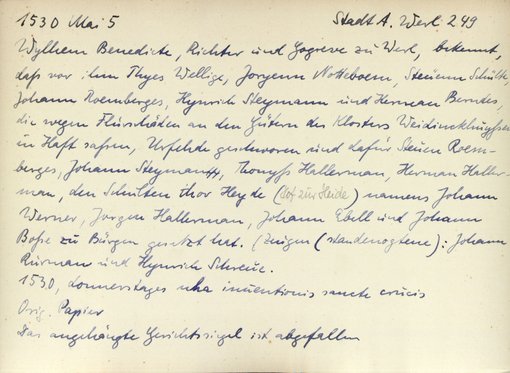 1530 Mai 5 Stadt A. Werl 249
Wylhem Benedicte, Richter und Gogreve zu Werl, bekennt,
daß vor ihm Thyes Wellige, Jorgenn Notteboem, Steuenn Schulte,
Johann Roemberges, Hynrich Steymann und Herman Berndes,
die wegen Flurschäden an den Gütern des Klosters
in Haft saßen, Urfehde geschworen und dafür Steuen Roem-
berges, Johann Steymann, Thonyß Hallerman, Herman Haller-
man, den Schulten thor Heyde (Hof zur Heide) namens Johann
Werner, Jorgen Hallerman, Johann Ebell und Johann
Boße zu Bürgen gesetzt hat. (Zeugen (standenogtene): Johann
Rurman und Hynrich Schreue.
1530, donnerstages nha inuentionis sancte crucis
Orig. Papier
Das angehängte Gerichtssiegel ist abgefallen